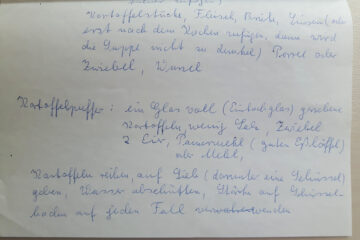 Kartoffelstücke, Fleisch, Brühe, (Linsen) oder
erst nach dem Kochen zufügen, dann wird
die Suppe nicht zu dunkel) Porree oder
Zwiebel, Wurzel
Kartoffelpuffer: ein Glas voll (Einkochglas) geriebene
Kartoffeln, wenig Salz, Zwiebel
2 Eier, Paniermehl (guten Eßlöffel)
oder Mehl,
Kartoffeln reiben, auf Sieb (darunter eine Schüssel)
geben, Wasser abschütten, Stärke auf Schüssel-
boden auf jeden Fall verwenden